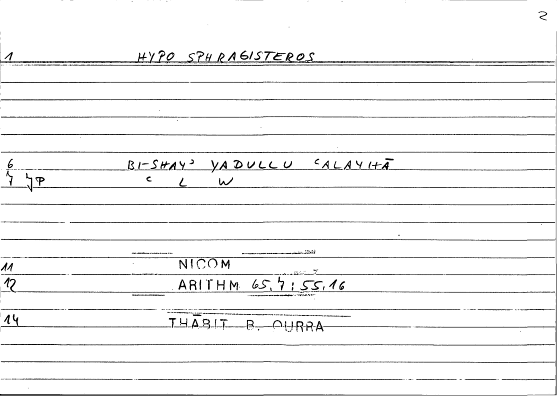 2
1 HYPO SPHRAGISTEROS
6 BI-SHAYʾ YADULLU ʿALAYHĀ
7 7P ʿ L W
11 NICOM
12 ARITHM 65,7:55,16
14 THĀBIT B. QURRA